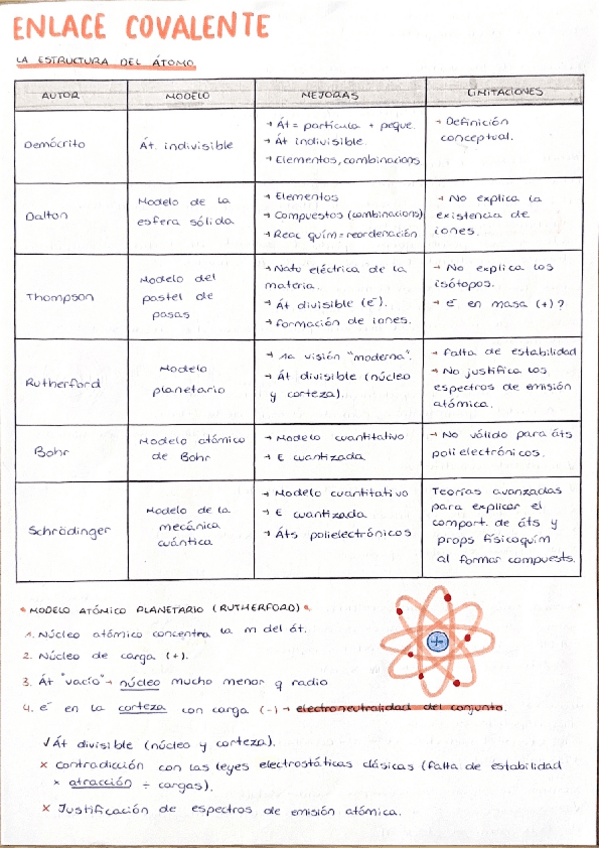 ENLACE COVALENTE
LA ESTRUCTURA DEL ÁTOMO
AUTOR
MODELO
MEJORAS
LIMITACIONES
Demócrito
Át. indivisible
→ Át = partícula + peque.
→ Át indivisible.
→ Elementos, combinacions
→ Definición
conceptual.
Dalton
Modelo de la
esfera sólida
→ Elementos
→ Compuestos (combinacions)
→ Reac quím = reordenación
→ No explica la
existencia de
iones.
Thompson
Modelo del
pastel de
pasas
→ Natu eléctrica de la
materia.
→ Át divisible (e⁻).
→ Formación de iones.
→ No explica los
isótopos.
→ e⁻ en masa (+)?
Rutherford
Modelo
planetario
→ 1a visión "moderna".
→ Át divisible (núcleo
y corteza).
→ Falta de estabilidad
→ No justifica los
espectros de emisión
atómica.
Bohr
Modelo atómico
de Bohr
→ Modelo cuantitativo
→ E cuantizada
→ No válido para áts
polielectrónicos.
Schrödinger
Modelo de la
mecánica
cuántica
→ Modelo cuantitativo
→ E cuantizada
→ Áts polielectrónicos
Teorías avanzadas
para explicar el
comport. de áts y
props físicoquím
al formar compuests.
• MODELO ATÓMICO PLANETARIO (RUTHERFORD) •
1. Núcleo atómico concentra la m del át.
2. Núcleo de carga (+).
3. Át "vacío" → núcleo mucho menor q radio
4. e⁻ en la corteza con carga (-) → electroneutralidad del conjunto.
+
√ Át divisible (núcleo y corteza).
× Contradicción con las leyes electrostáticas clásicas (falta de estabilidad
× atracción ÷ cargas).
× Justificación de espectros de emisión atómica.